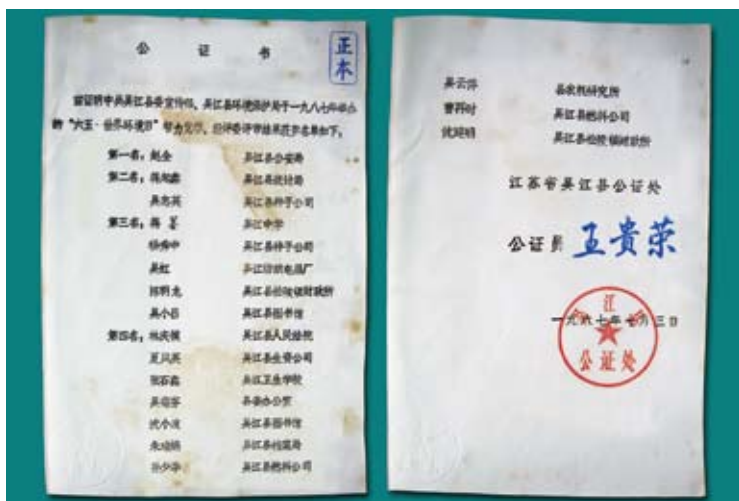 公证书
正本
兹证明中共吴江县委宣传部、吴江县环境保护局于一九八七年举办
的“六五·世界环境日”智力竞赛，经评委评审结果获奖名单如下。
第一名：赵全 吴江县公安局
第二名： 吴江县统计局
吴志英 吴江县种子公司
第三名：蒋 吴江中学
中 吴江县种子公司
吴虹 吴江 电品厂
陈明龙 吴江县松陵镇财政所
吴小 吴江县图书馆
第四名：林庆 吴江县人民法院
夏风英 吴江县生资公司
张石鑫 吴江卫生学校
吴 县委办公室
沈小 吴江县图书馆
朱 吴江县档案局
孙少华 吴江县燃料公司
吴云 县农机研究所
时 吴江县燃料公司
沈 明 吴江县松陵镇财政所
江苏省吴江县公证处
公证员 王贵荣
一九八七年七月三日
吴江县
公证处